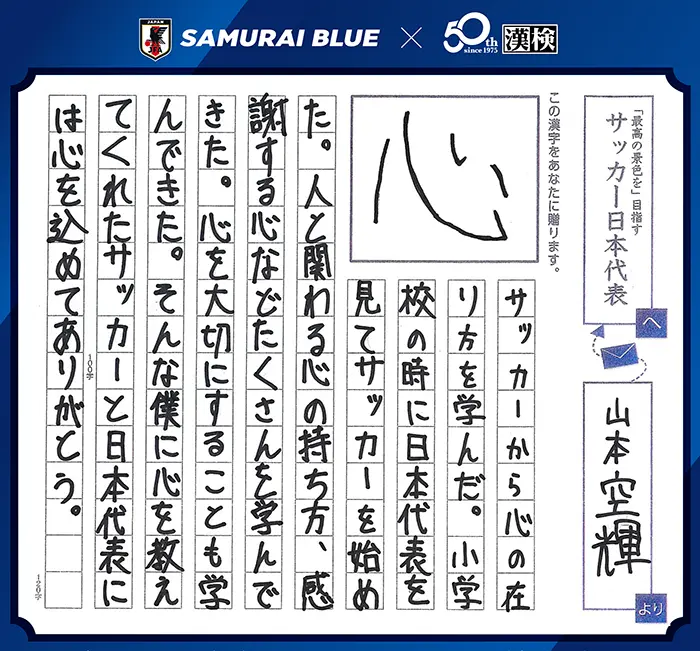 SAMURAI BLUE × 50th since 1975 漢検
JAPAN
JFA
「最高の景色を」目指す
サッカー日本代表
へ
山本空輝
より
この漢字をあなたに贈ります。
心
サッカーから心の在
り方を学んだ。小学
校の時に日本代表を
見てサッカーを始め
た。人と関わる心の持ち方、感
謝する心などたくさんを学んで
きた。心を大切にすることも学
んできた。そんな僕に心を教え
てくれたサッカーと日本代表に
は心を込めてありがとう。
100字
120字